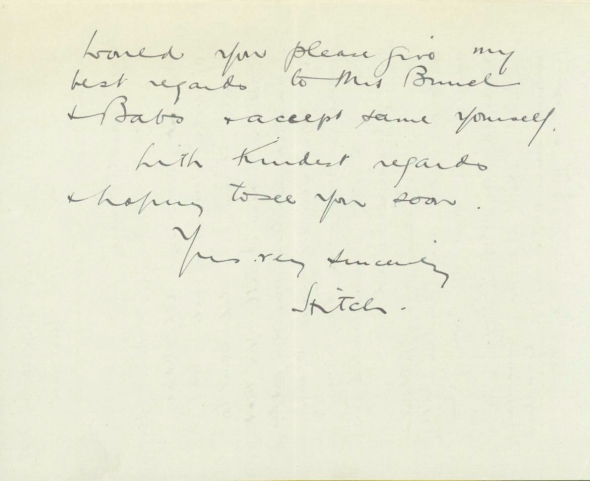 Would you please give my
best regards to Mrs Brunel
& Babs & accept same yourself.
With Kindest regards
& hoping to see you soon.
Yrs very sincerely
Hitch.